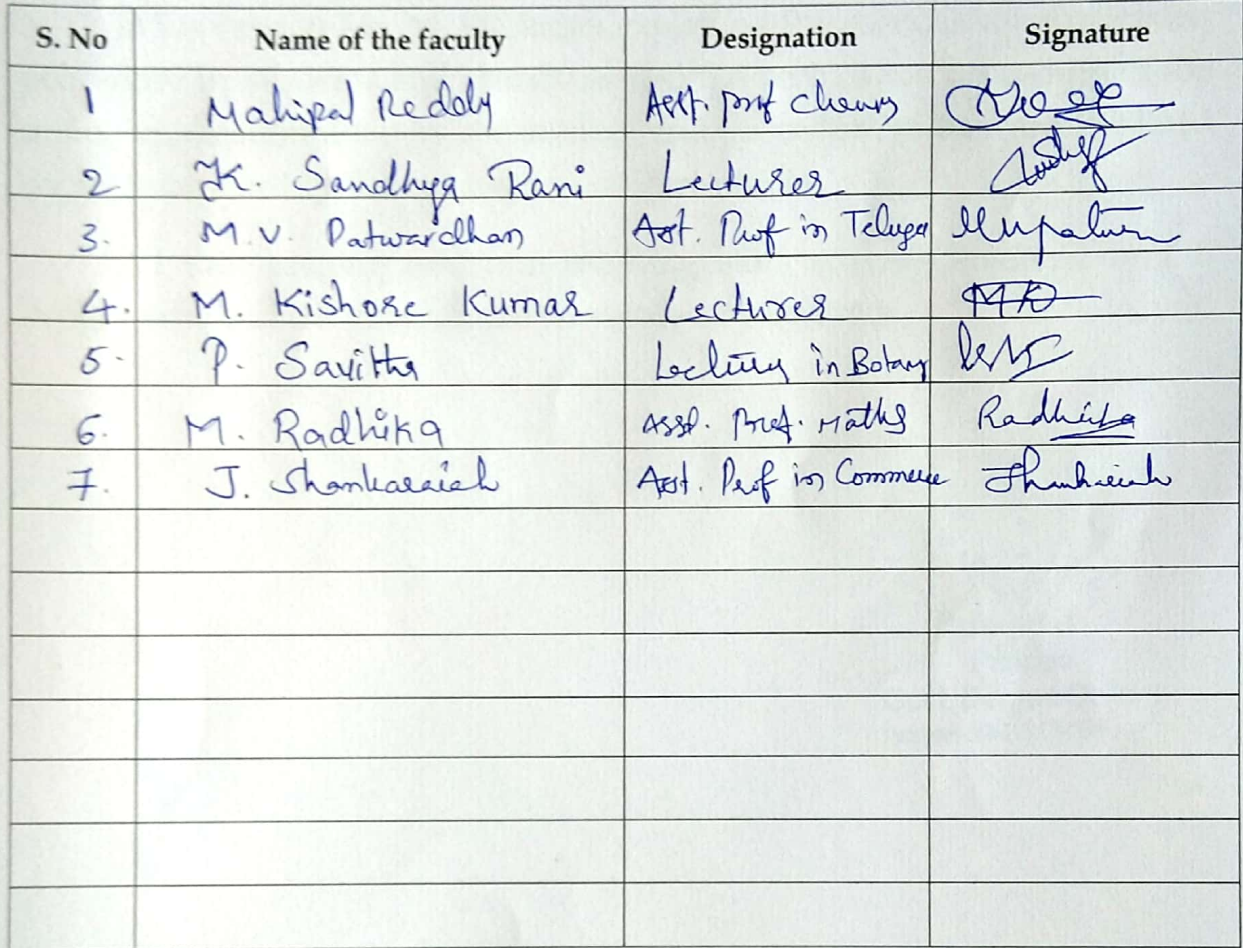 S. No Name of the faculty Designation Signature
1 Mahipal Reddy Asst. prof
2 K. Sandhya Rani Lecturer
3. M.V. Patwardhan Asst. Prof in Telugu
4. M. Kishore Kumar Lecturer MK
5. P. Savitha Lecturer in Botany
6. M. Radhika Asst. Prof. Maths Radhika
7. J. Shankaraiah Asst. Prof in Commerce